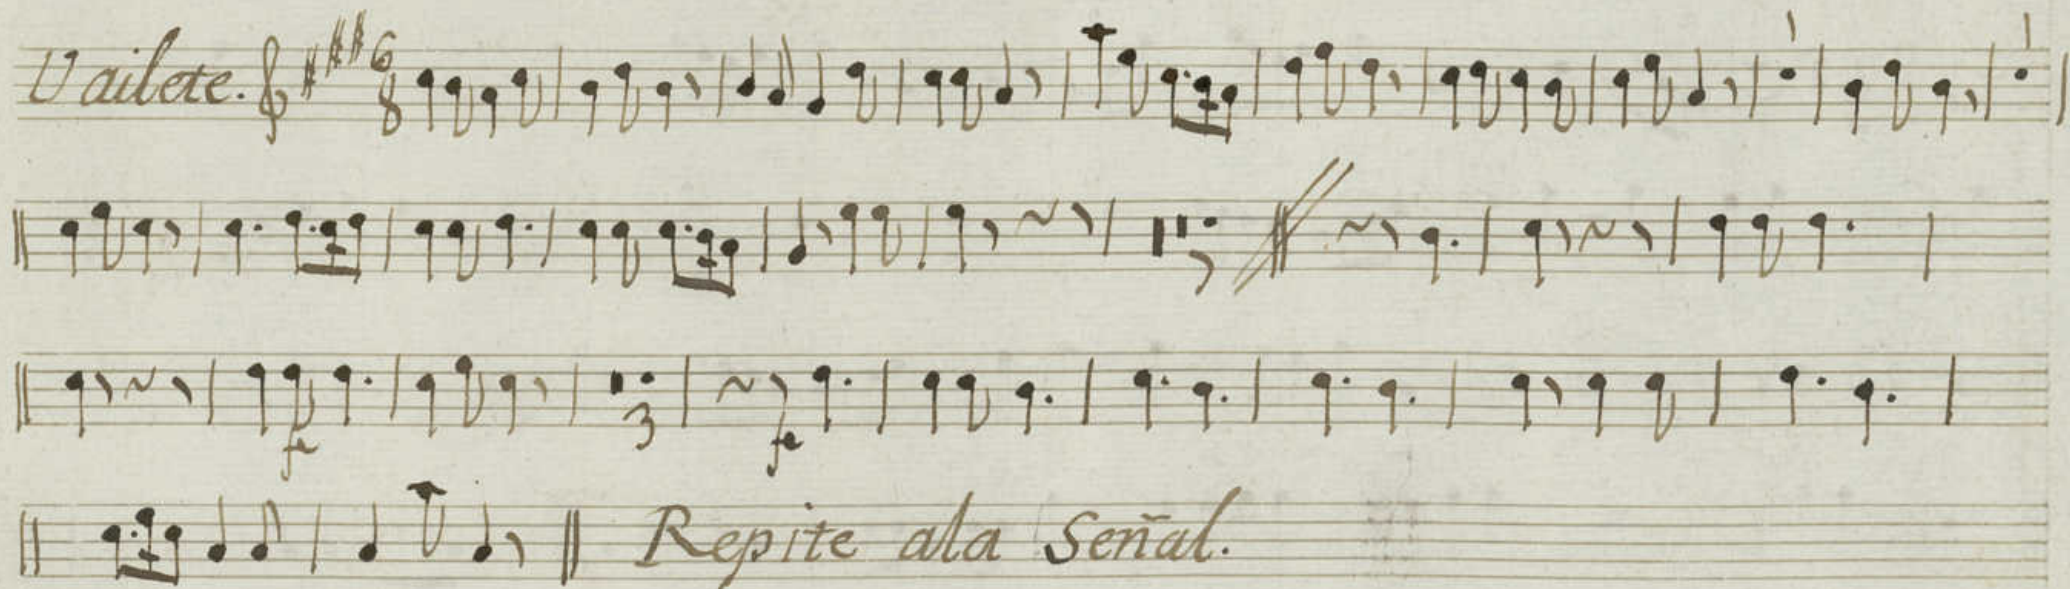 Vailete. 6 8
7
f 3 f
Repite ala Señal.